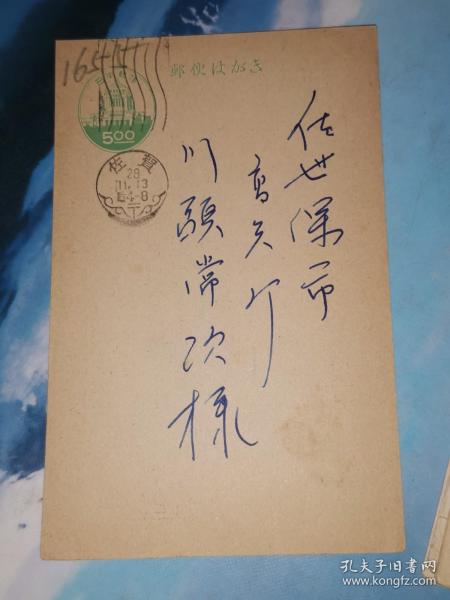 郵便はがき
1654
5.00
佐賀
28
11.13
佐世保市
高天町
川頭常次様
孔夫子旧书网
www.kongfz.com